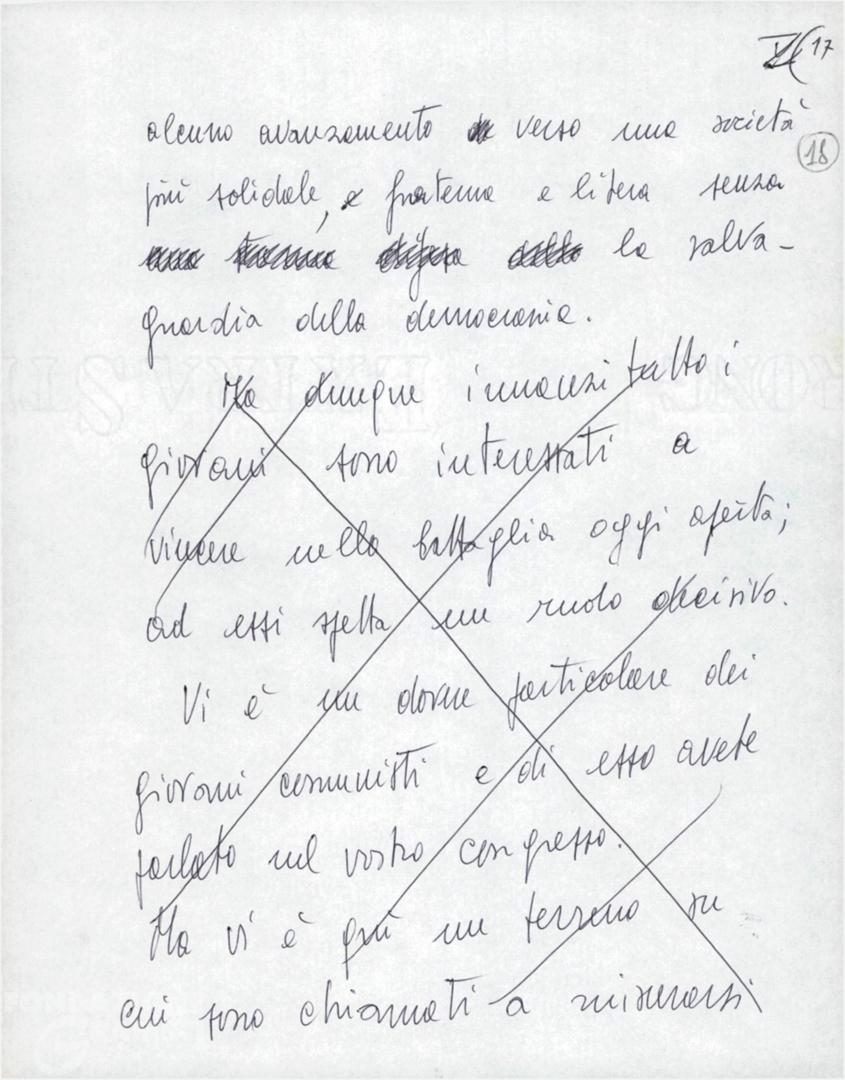 17
18
alcuno avanzamento verso una società
più solidale, e fraterna e libera senza
la salva-
guardia della democrazia.
Ma dunque innanzi tutto i
giovani sono interessati a
vincere nella battaglia oggi aperta;
ad essi spetta un ruolo decisivo.
Vi è un dovere particolare dei
giovani comunisti e di esso avete
parlato nel vostro congresso.
Ma vi è qui un terreno su
cui sono chiamati a misurarsi